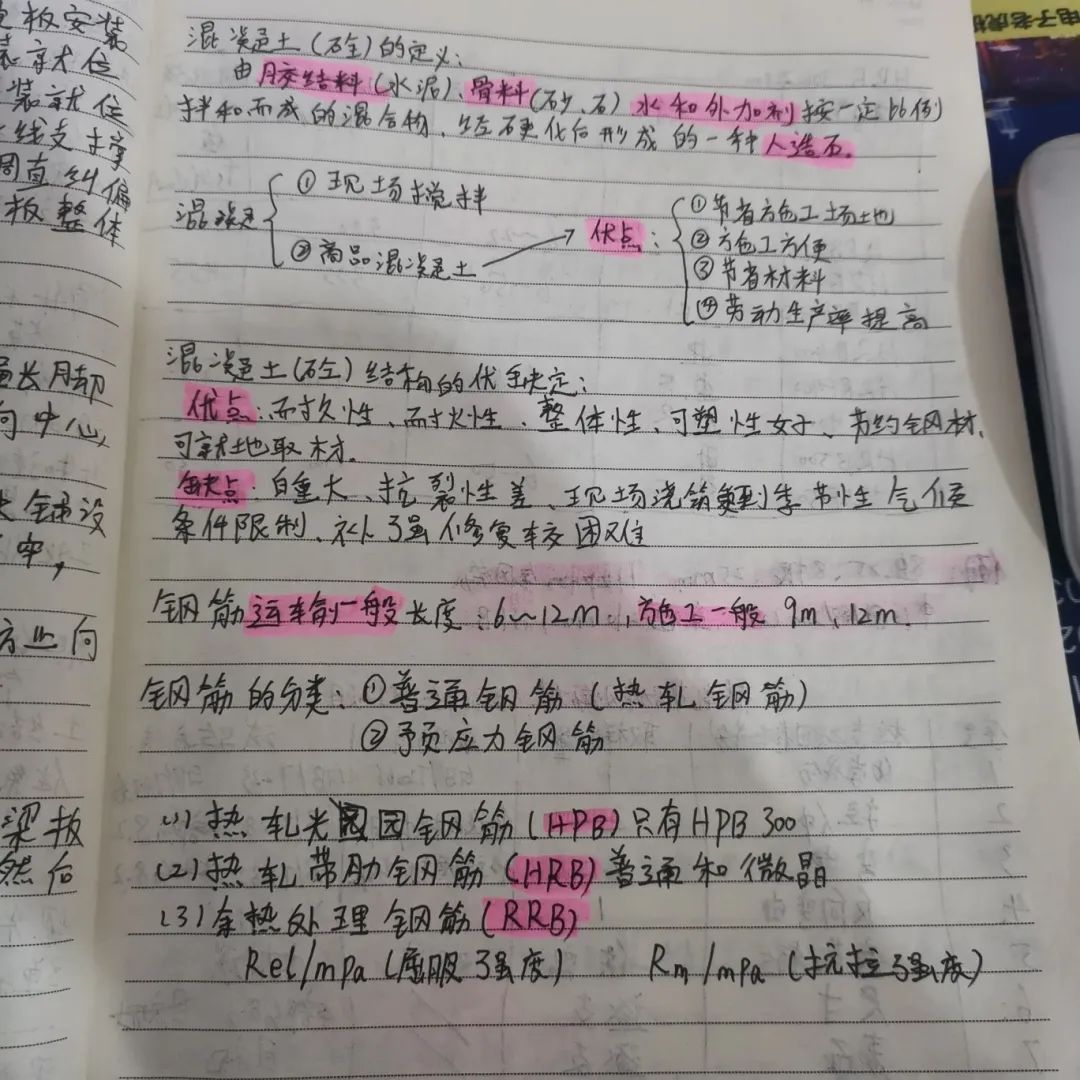 电子老虎机
板安装
装就位
装就位
线支撑
调直纠偏
板整体
中心
方止向
梁板
然后
混凝土(砼)的定义:
由胶结料(水泥)、骨料(砂、石)水和外加剂按一定比例
拌和而成的混合物,经硬化后形成的一种人造石。
混凝土
①现场搅拌
②商品混凝土
优点:
①节省施工场地
②施工方便
③节省材料
④劳动生产率提高
混凝土(砼)结构的优缺点:
优点:耐久性、耐火性、整体性、可塑性好、节约钢材、
可就地取材。
缺点:自重大、抗裂性差、现场浇筑受到季节性气候
条件限制、补强修复较困难
钢筋运输一般长度:6~12m,施工一般 9m,12m.
钢筋的分类:①普通钢筋(热轧钢筋)
②予页应力钢筋
(1)热轧光园钢筋(HPB)只有HPB 300
(2)热轧带肋钢筋(HRB)普通和微晶
(3)余热处理钢筋(RRB)
Rel/mpa(屈服强度) Rm/mpa(抗拉强度)